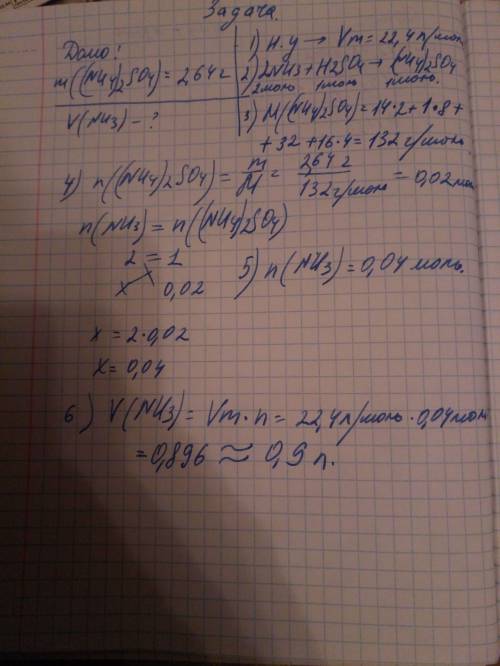 Задача.
Дано:
m((NH4)2SO4) = 264 г
V(NH3) - ?
1) н.у → Vm = 22,4 л/моль
2) 2NH3 + H2SO4 → (NH4)2SO4
2моль 1моль 1моль.
3) M((NH4)2SO4) = 14·2 + 1·8 +
+ 32 + 16·4 = 132 г/моль
4) n((NH4)2SO4) = m/M = 2,64 г/132 г/моль = 0,02 мол
n(NH3) = n((NH4)2SO4)
2 = 1
x 0,02
x = 2·0,02
x = 0,04
5) n(NH3) = 0,04 моль.
6) V(NH3) = Vm · n = 22,4 л/моль · 0,04 мол
= 0,896 ≈ 0,9 л.